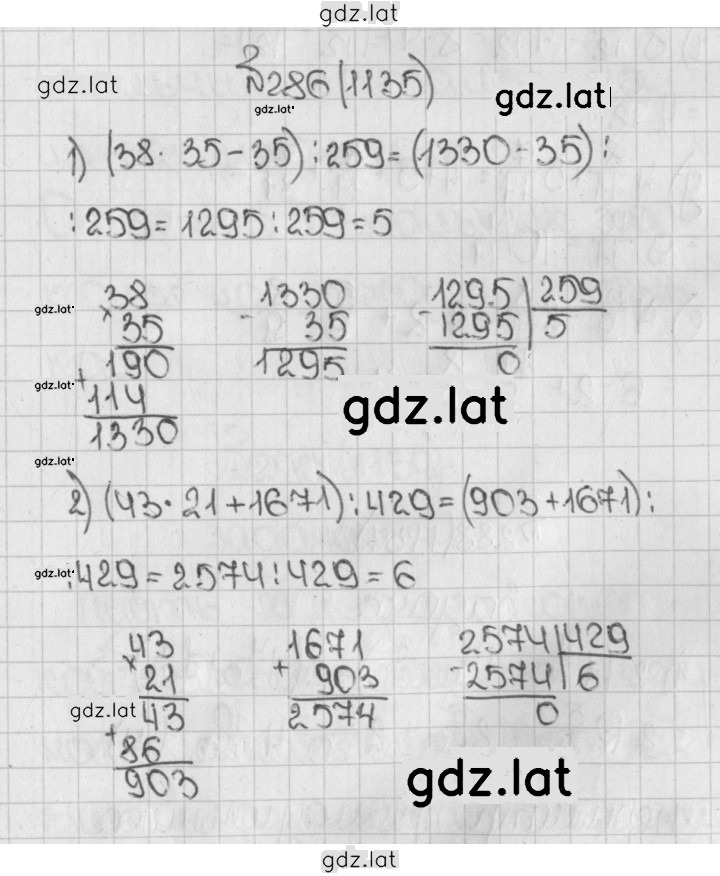 gdz.lat
№286 (1135)
gdz.lat gdz.lat gdz.lat
1) (38 · 35 - 35) : 259 = (1330 - 35) :
: 259 = 1295 : 259 = 5
gdz.lat 38 1330 1295 259
× 35 - 35 - 1295 5
190 1295 0
gdz.lat + 114 gdz.lat
1330
gdz.lat
2) (43 · 21 + 1671) : 429 = (903 + 1671) :
gdz.lat : 429 = 2574 : 429 = 6
43 1671 2574 429
× 21 + 903 - 2574 6
gdz.lat 43 2574 0
+ 86
903 gdz.lat
gdz.lat